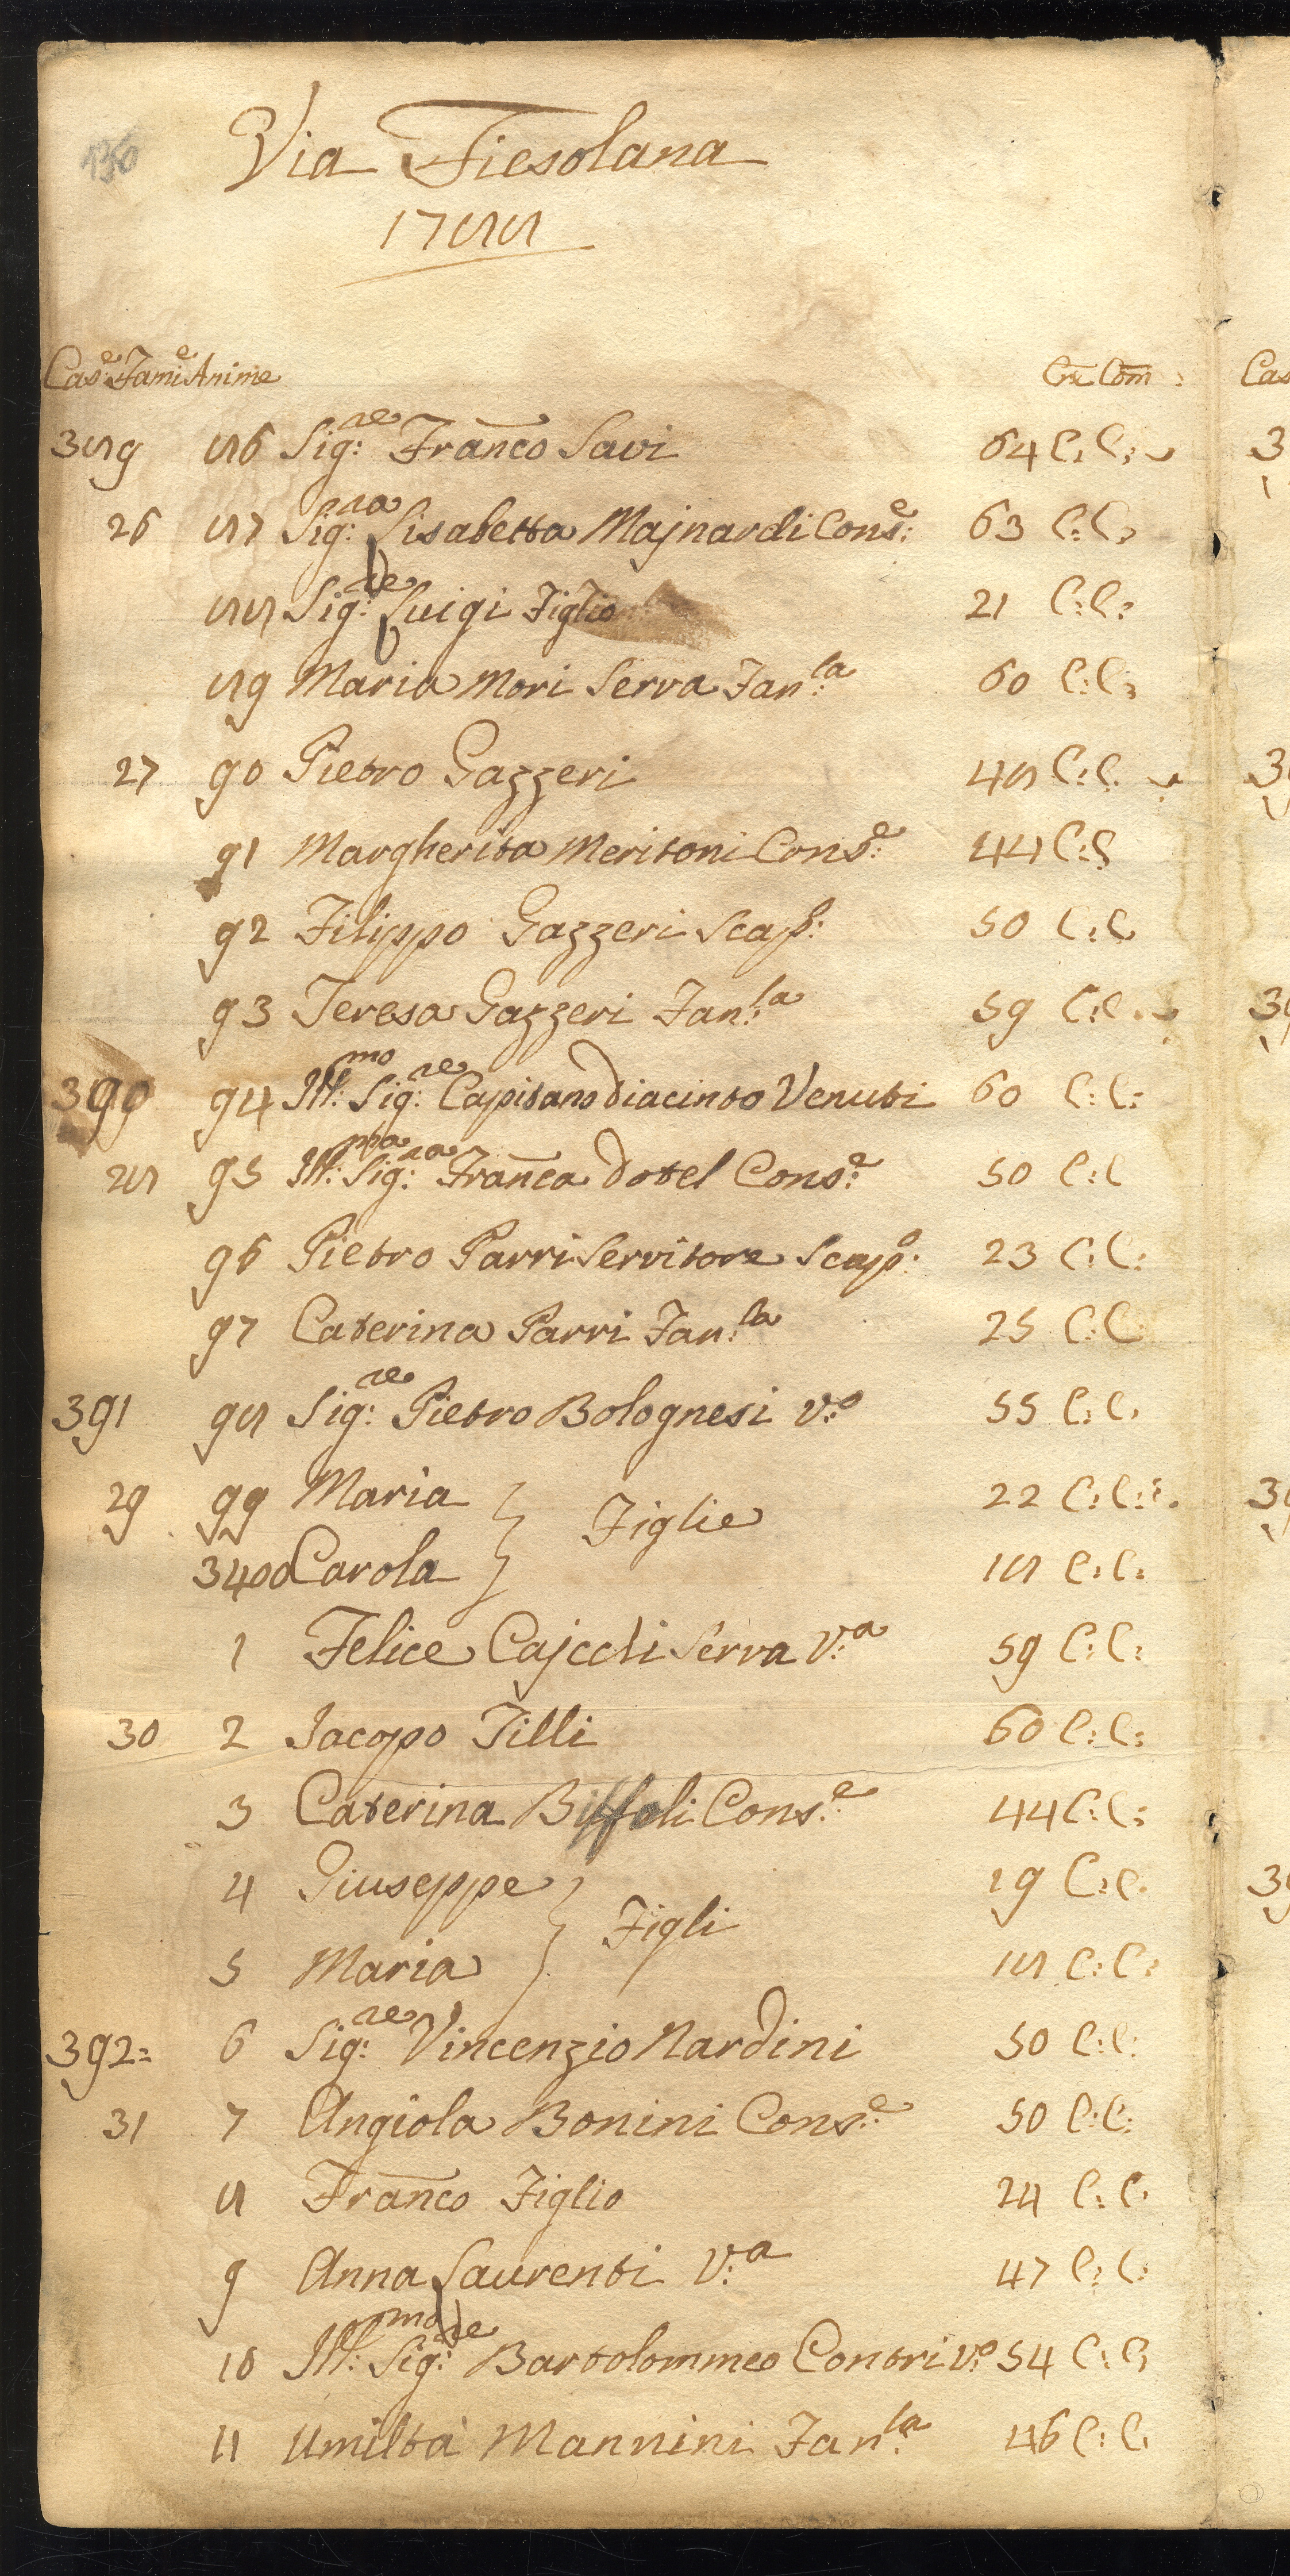 130
Via Fiesolana
1788
Cas.e Fam.e Anime Cre Com
389 86 Sig.re Franco Savi 64 C: C:
26 87 Sig.ra Lisabetta Majnardi Cons.e 63 C: C:
88 Sig.re Luigi Figlio 21 C: C:
89 Maria Mori Serva Fan.la 60 C: C:
27 90 Pietro Gazzeri 48 C: C.
91 Margherita Meritoni Cons.e 44 C: C
92 Filippo Gazzeri Scap.o 50 C: C
93 Teresa Gazzeri Fan.la 59 C: C.
390 94 Ill.mo Sig.re Capitano Diacinto Venuti 60 C: C:
28 95 Ill.ma Sig.ra Franca Dotel Cons.e 50 C: C
96 Pietro Parri Servitore Scap.o 23 C: C:
97 Caterina Parri Fan.la 25 C: C
391 98 Sig.re Pietro Bolognesi V.o 55 C: C.
29 99 Maria } Figlie 22 C: C:
3400 Carola } 18 C: C:
1 Felice Serva V.a 59 C: C:
30 2 Jacopo Tilli 60 C: C:
3 Caterina Biffoli Cons.e 44 C: C:
4 Giuseppe } Figli 19 C: C.
5 Maria } 18 C: C:
392= 6 Sig.re Vincenzio Nardini 50 C: C:
31 7 Angiola Bonini Cons.e 50 C: C:
8 Franco Figlio 24 C: C.
9 Anna Laurenti V.a 47 C: C:
10 Ill.mo Sig.re Bartolommeo Contri V.o 54 C: C:
11 Umiltà Mannini Fan.la 46 C: C: